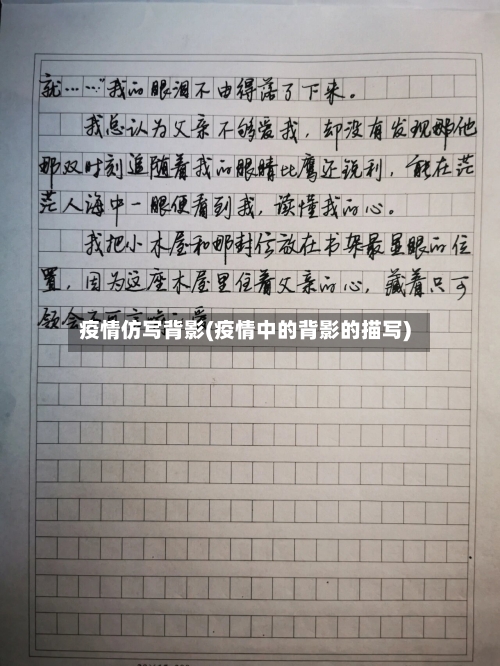 就……”我的眼泪不由得落了下来。
我总认为父亲不够爱我，却没有发现他
那双时刻追随着我的眼睛比鹰还锐利，能在茫
茫人海中一眼便看到我，读懂我的心。
我把小木屋和那封信放在书架最显眼的位
置，因为这座木屋里住着父亲的心，藏着只可
领会不可言
疫情仿写背影(疫情中的背影的描写)